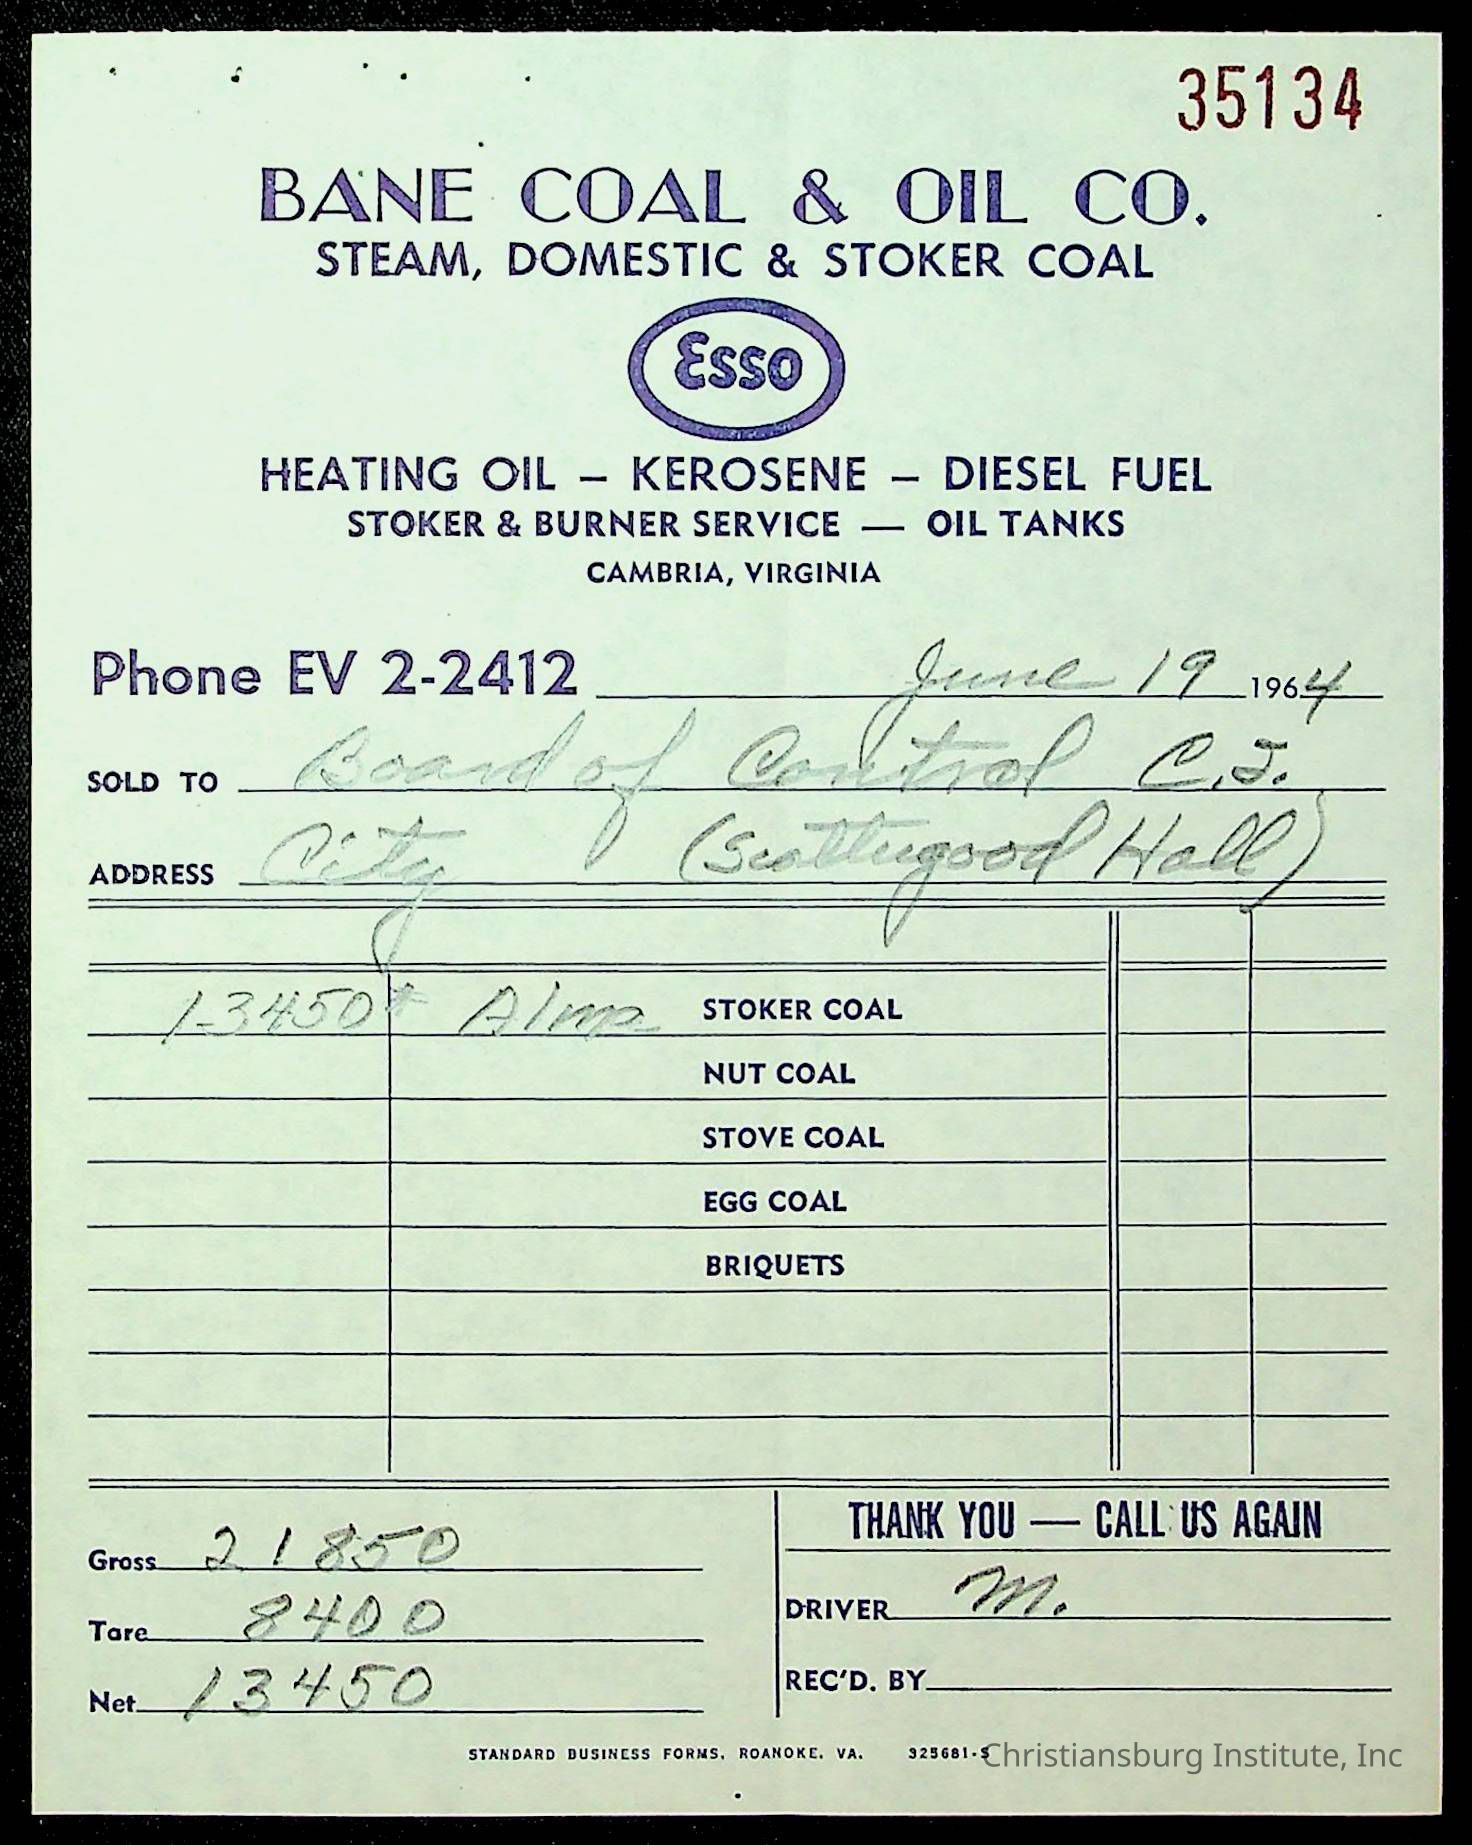 35134
BANE COAL & OIL CO.
STEAM, DOMESTIC & STOKER COAL
Esso
HEATING OIL – KEROSENE – DIESEL FUEL
STOKER & BURNER SERVICE — OIL TANKS
CAMBRIA, VIRGINIA
Phone EV 2-2412 June 19 1964
SOLD TO Board of Control C.I.
ADDRESS City (Scattergood Hall)
13450# Alma STOKER COAL
NUT COAL
STOVE COAL
EGG COAL
BRIQUETS
THANK YOU — CALL US AGAIN
Gross 21850
DRIVER M.
Tare 8400
REC'D. BY
Net 13450
STANDARD BUSINESS FORMS, ROANOKE, VA. 325681-S
Christiansburg Institute, Inc